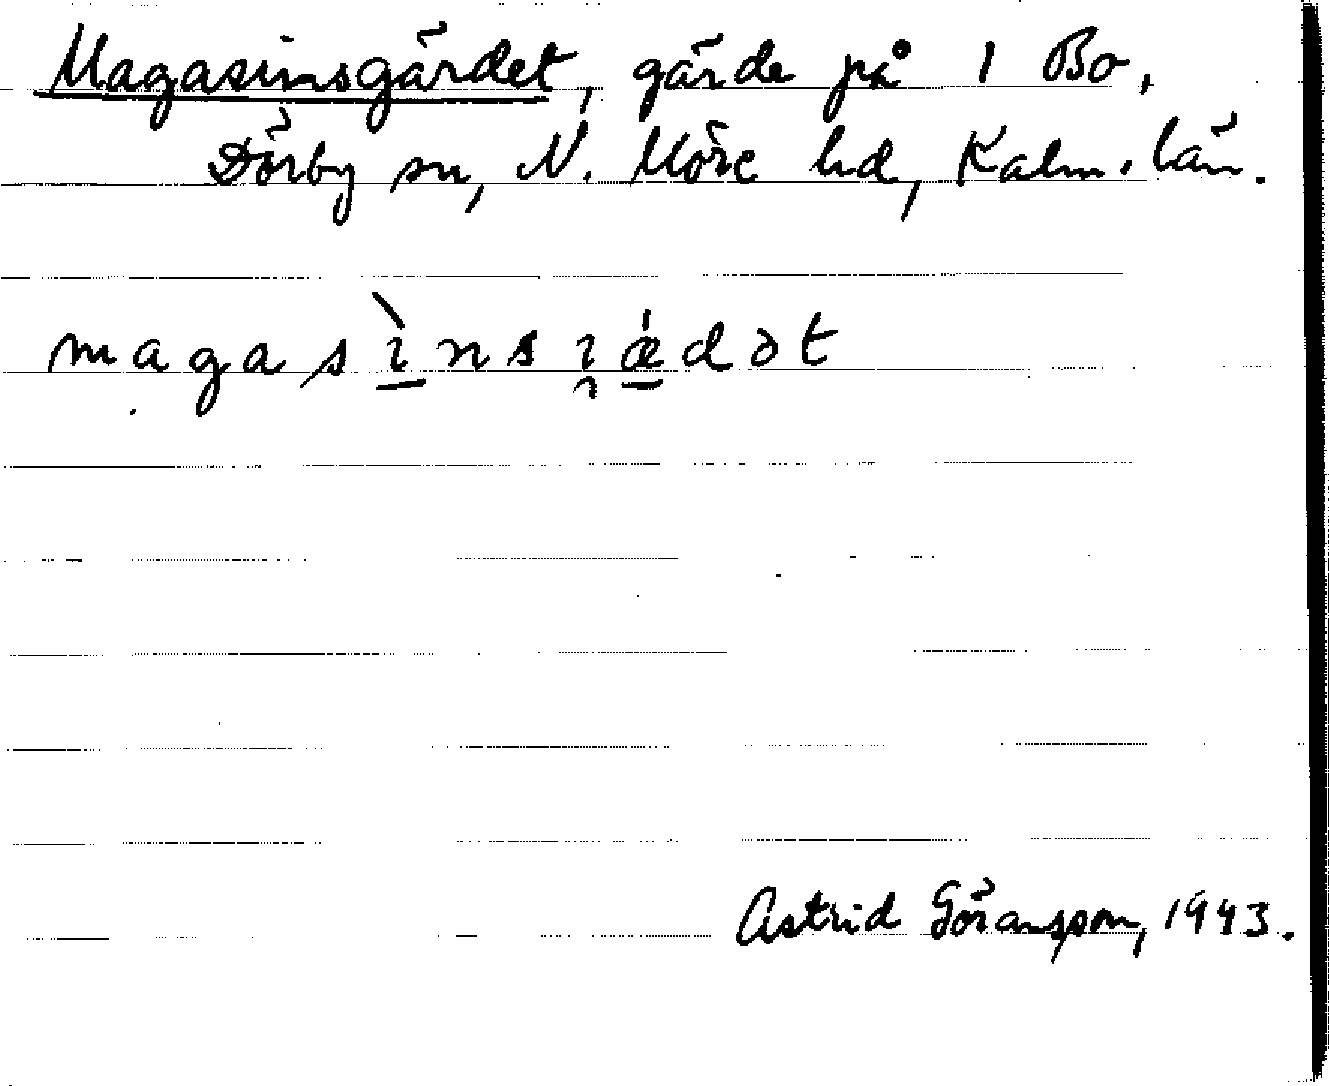 Magasinsgärdet, gärde på 1 Bo,
Dörby sn, N. Möre hd, Kalm. län.
magasìnsıædət
Astrid Göransson, 1943.